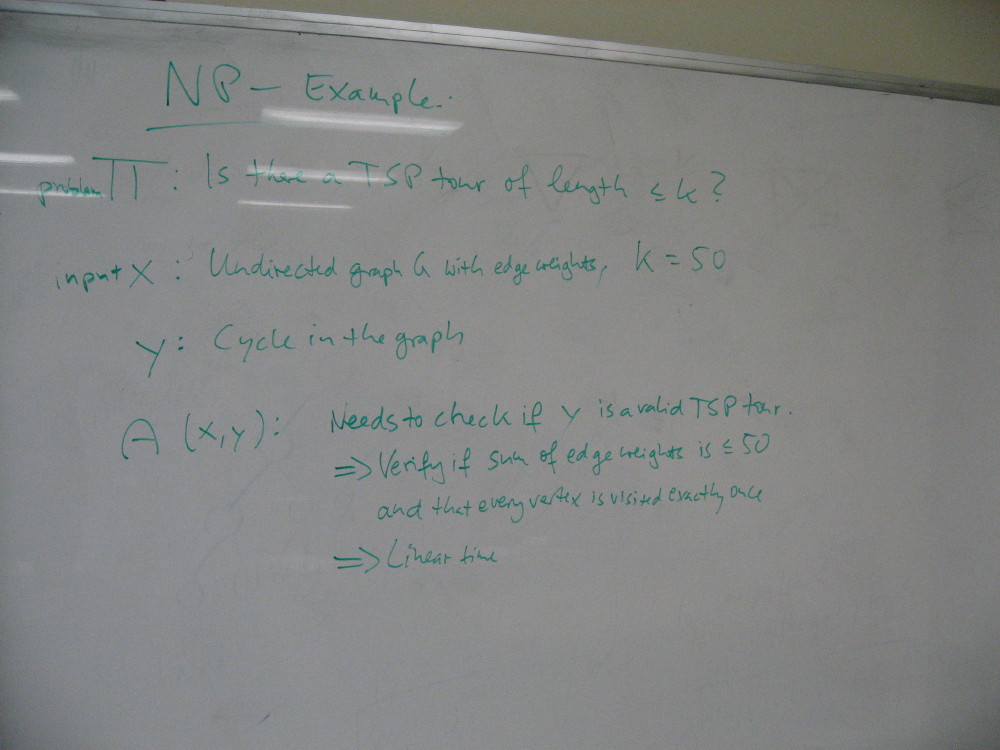 NP - Example:
problem Π: Is there a TSP tour of length ≤ k?
input X: Undirected graph G with edge weights, k = 50
y: Cycle in the graph
A (x,y): Needs to check if y is a valid TSP tour.
=> Verify if sum of edge weights is ≤ 50
and that every vertex is visited exactly once
=> Linear time